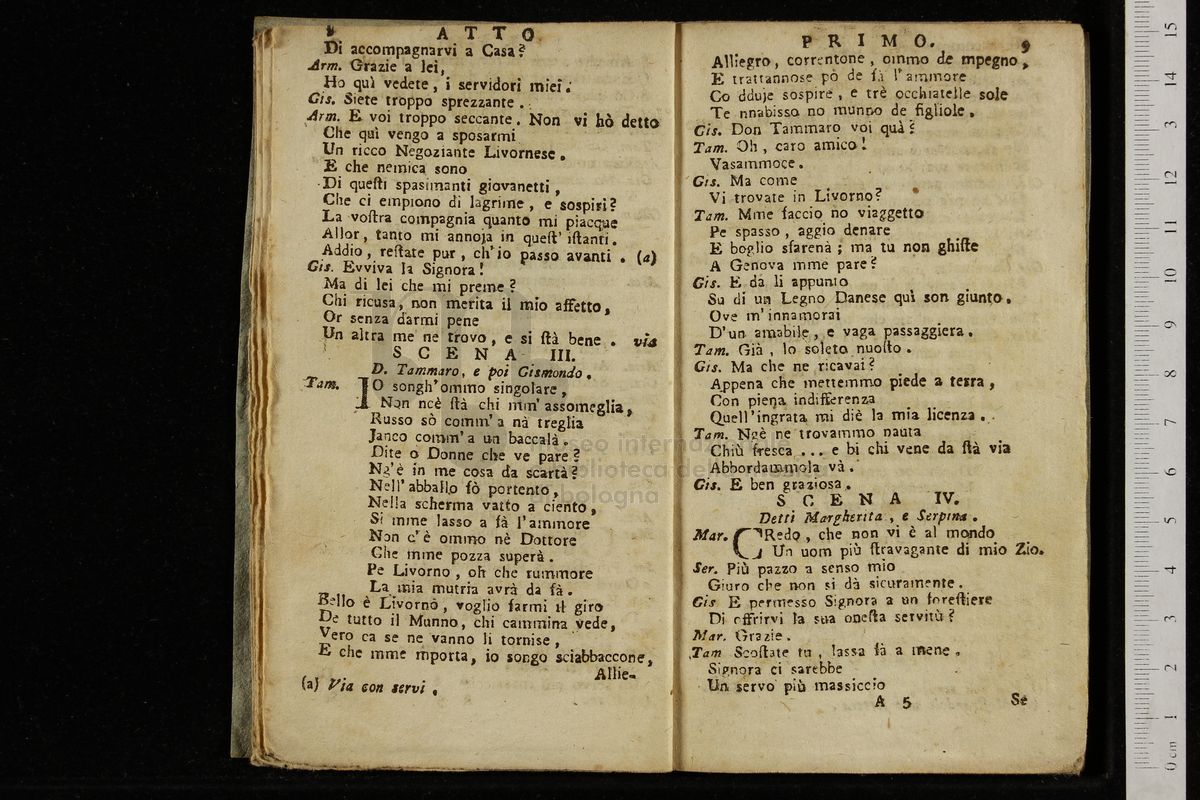 8 A T T O
Di accompagnarvi a Casa?
Arm. Grazie a lei,
Ho quì vedete, i servidori miei.
Gis. Siete troppo sprezzante.
Arm. E voi troppo seccante. Non vi hò detto
Che quì vengo a sposarmi
Un ricco Negoziante Livornese.
E che nemica sono
Di questi spasimanti giovanetti,
Che ci empiono di lagrime, e sospiri?
La vostra compagnia quanto mi piacque
Allor, tanto mi annoja in quest' istanti.
Addio, restate pur, ch'io passo avanti. (a)
Gis. Evviva la Signora!
Ma di lei che mi preme?
Chi ricusa, non merita il mio affetto,
Or senza darmi pene
Un altra me ne trovo, e si stà bene. via
S C E N A III.
D. Tammaro, e poi Gismondo.
Tam. IO songh'ommo singolare,
Non ncè stà chi mm'assomeglia,
Russo sò comm'a nà treglia
Janco comm'a un baccalà.
Dite o Donne che ve pare?
Nc'è in me cosa da scartà?
Nell'abballo fò portento,
Nella scherma vatto a ciento,
Si mme lasso a fà l'ammore
Non c'è ommo nè Dottore
Che mme pozza superà.
Pe Livorno, oh che rummore
La mia mutria avrà da fà.
Bello è Livorno, voglio farmi il giro
De tutto il Munno, chi cammina vede,
Vero ca se ne vanno li tornise,
E che mme mporta, io songo sciabbaccone,
Allie-
(a) Via con servi.
P R I M O. 9
Alliegro, correntone, ommo de mpegno,
E trattannose pò de fà l'ammore
Co dduje sospire, e trè occhiatelle sole
Te nnabisso no munno de figliole.
Gis. Don Tammaro voi quà?
Tam. Oh, caro amico!
Vasammoce.
Gis. Ma come
Vi trovate in Livorno?
Tam. Mme faccio no viaggetto
Pe spasso, aggio denare
E boglio sfarenà; ma tu non ghiste
A Genova mme pare?
Gis. E da lì appunto
Su di un Legno Danese quì son giunto.
Ove m'innamorai
D'un amabile, e vaga passaggiera.
Tam. Già, lo soleto nuosto.
Gis. Ma che ne ricavai?
Appena che mettemmo piede a terra,
Con piena indifferenza
Quell'ingrata mi diè la mia licenza.
Tam. Ncè ne trovammo nauta
Chiù fresca ... e bi chi vene da stà via
Abbordammola và.
Gis. E ben graziosa.
S C E N A IV.
Detti Margherita, e Serpina.
Mar. CRedo, che non vi è al mondo
Un uom più stravagante di mio Zio.
Ser. Più pazzo a senso mio
Giuro che non si dà sicuramente.
Gis E permesso Signora a un forestiere
Di offrirvi la sua onesta servitù?
Mar. Grazie.
Tam Scostate tu, lassa fà a mene.
Signora ci sarebbe
Un servo più massiccio
A 5 Se
museo internazionale
biblioteca della musica
bologna
0 cm 1 2 3 4 5 6 7 8 9 10 11 12 13 14 15